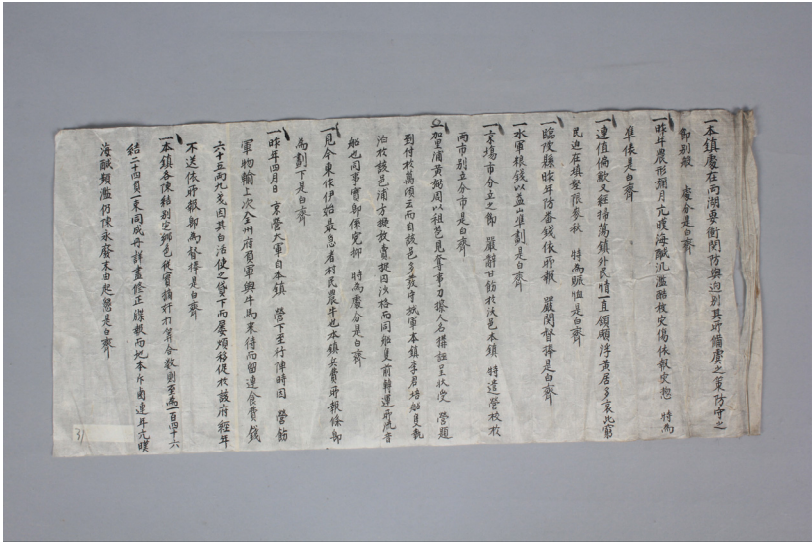 一本鎭處在兩湖要衝關防與迥別其所備虞之策防守之
節別般 處分是白齊
一昨年農形彌月亢暵海醎汎濫酷被灾傷依報灾㧾 特爲
準俵是白齊
一連值儉歉又經掃蕩鎭外民情一直顒浮黃居多哀此窮
民迫在塡壑限麥秋 特爲賑恤是白齊
一臨陂縣昨年防番錢依所報 嚴関督捧是白齊
一水軍粮錢以益山準劃是白齊
一京場市分立之節 嚴辭甘飭於沃邑本鎭 特造營校 
兩市別立分市是白齊
一加里浦黃弼周以租邑見奪事刀 人名 呈狀受 營題
到付於萬頃 而自該邑多發守城軍本鎭李君 船隻執
泊於該邑浦方 放賣 因 格而同船隻前轉運所流音
船也同事實 係寃抑 特爲處分是白齊
一見今東作伊始最急者村民農牛也本鎭兵費所報條 
爲劃下是白齊
一昨年四月日 京營大軍自本鎭 營下至行陣時因 營飭
軍物輸上次全州府 軍與牛馬來待而留連食費錢
六十五兩九戔因其白活使之貸下而屢煩移促於該府經年
不送依所報 爲督捧是白齊
一本鎭各陳結別定鄕色從實 打 合數則至爲一百四十六
結二十四負八束同成冊詳盡修正牒報而地本斥鹵連年亢暵
海醎頻濫仍陳永廢末由起 是白齊
31